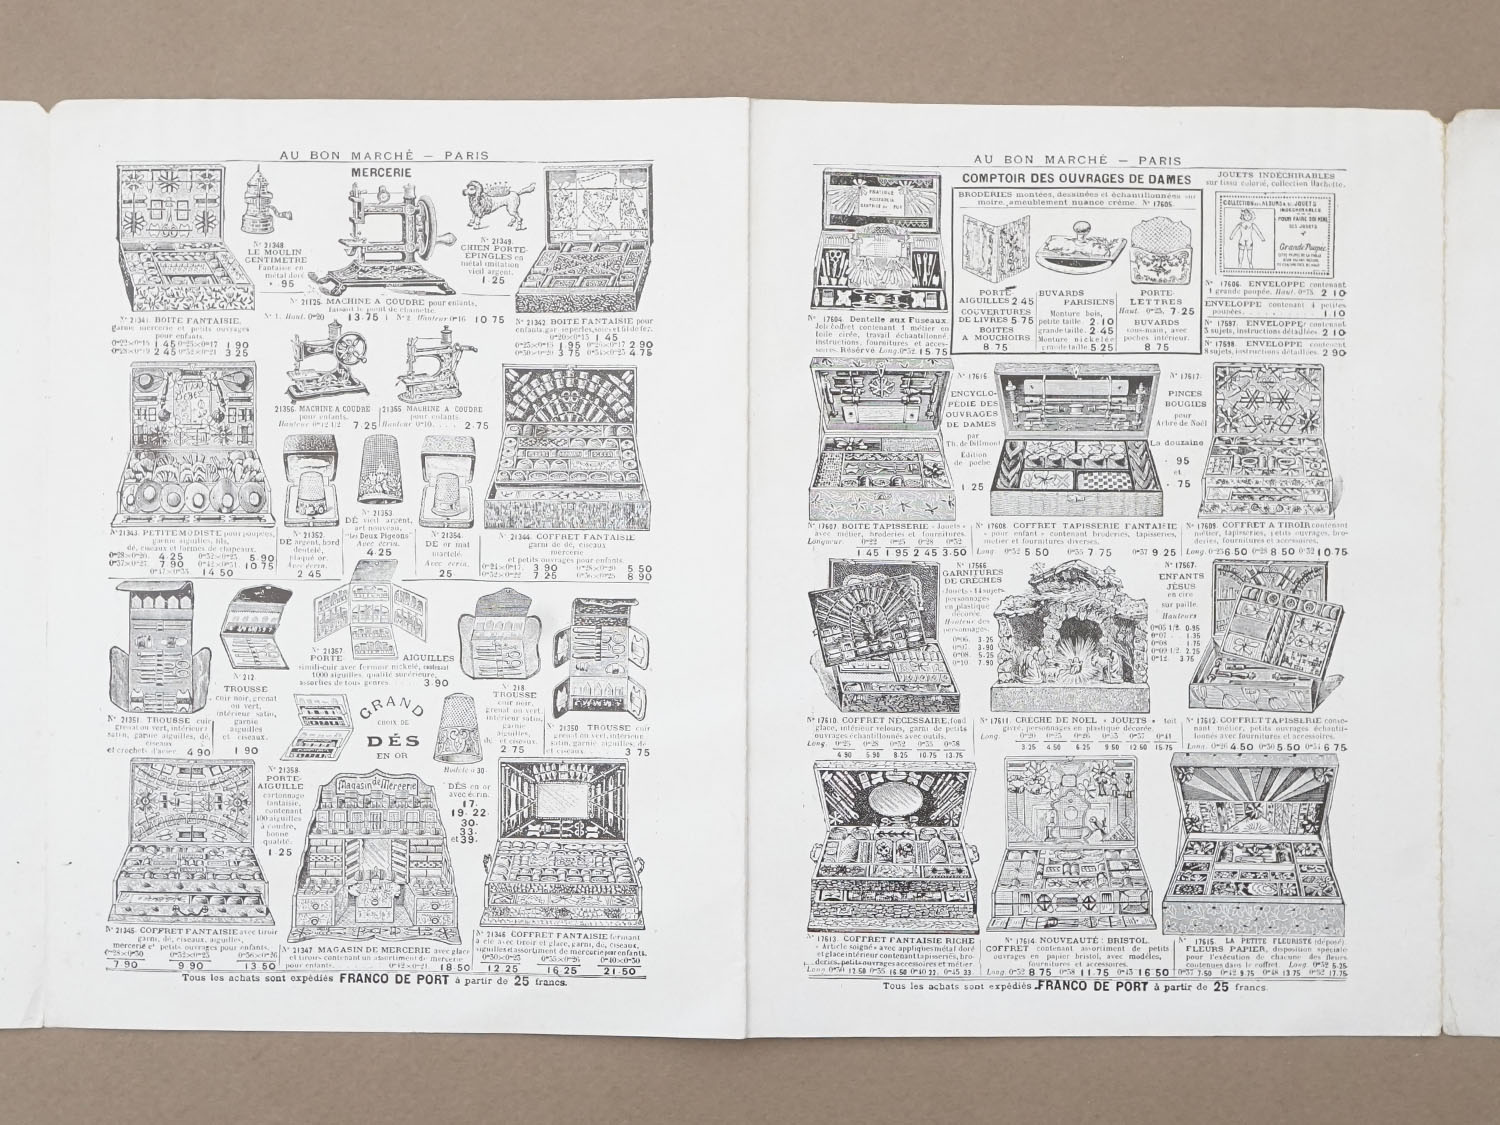 AU BON MARCHÉ — PARIS
MERCERIE
Nº 21348
LE MOULIN
CENTIMETRE
Fantaisie en
métal doré
95
Nº 21349.
CHIEN PORTE-
EPINGLES en
métal imitation
vieil argent.
1 25
Nº 21125. MACHINE A COUDRE pour enfants,
faisant le point de chainette.
Nº 1. Haut. 0ᵐ20 13 75 | Nº 2 Hauteur 0ᵐ16 10 75
Nº 21341. BOITE FANTAISIE,
garnie mercerie et petits ouvrages
pour enfants.
1 45 0ᵐ25×0ᵐ17 1 90
2 45 0ᵐ32×0ᵐ21 3 25
Nº 21342. BOITE FANTAISIE pour
0ᵐ20×0ᵐ15 1 45
0ᵐ25×0ᵐ15 1 95 2 90
0ᵐ30×0ᵐ20 3 75 4 75
21356. MACHINE A COUDRE
pour enfants.
Hauteur 0ᵐ12 1/2 7 25
21355 MACHINE A COUDRE
pour enfants.
Hauteur 0ᵐ10. . . . . 2 75
Nº 21343. PETITE MODISTE pour poupées,
garnie aiguilles, fils,
dé, ciseaux et formes de chapeaux.
0ᵐ28×0ᵐ20. 4 25 0ᵐ32×0ᵐ25 5 90
0ᵐ37×0ᵐ27. 7 90 0ᵐ42×0ᵐ31 10 75
14 50
Nº 21352.
DE argent, bord
dentelé,
plaqué or.
Avec écrin.
2 45
Nº 21353.
DÉ vieil argent,
art nouveau,
"Les Deux Pigeons"
Avec écrin.
4 25
Nº 21354.
DÉ or mat
martelé.
Avec écrin.
25
Nº 21344. COFFRET FANTAISIE
garni de dé, ciseaux
mercerie
et petits ouvrages pour enfants.
0ᵐ24×0ᵐ17. 3 90 0ᵐ28×0ᵐ20 5 50
0ᵐ32×0ᵐ22 7 25 8 90
Nº 21351. TROUSSE cuir
grenat ou vert, intérieur
satin, garnie aiguilles, dé,
ciseaux
et crochets d'acier 4 90
Nº 212.
TROUSSE
cuir noir, grenat
ou vert,
intérieur satin,
garnie
aiguilles
et ciseaux.
1 90
Nº 21357
PORTE-AIGUILLES
simili-cuir avec fermoir nickelé, contenant
1000 aiguilles, qualité supérieure,
assorties de tous genres . . . 3 90
GRAND
CHOIX DE
DÉS
EN OR
Nº 218
TROUSSE
cuir noir,
grenat ou vert,
intérieur satin,
garnie
aiguilles,
dé et ciseaux.
2 75
Nº 21350 TROUSSE cuir
grenat ou vert, intérieur
satin, garnie aiguilles, dé
et ciseaux . . . 3 75
Nº 21358
PORTE-
AIGUILLE
cartonnage
fantaisie,
contenant
100 aiguilles
à coudre,
bonne
qualité.
1 25
Magasin de Mercerie
Modèle à 30
DÉS en or
avec écrin.
17.
19. 22.
30.
33.
et 39.
Nº 21345. COFFRET FANTAISIE avec tiroir
garni, dé, ciseaux, aiguilles,
mercerie et petits ouvrages pour enfants.
0ᵐ28×0ᵐ20 0ᵐ32×0ᵐ23 0ᵐ36×0ᵐ26
7 90 9 90 13 50
Nº 21347 MAGASIN DE MERCERIE avec glace
et tiroirs contenant un assortiment de mercerie
pour enfants. 0ᵐ42×0ᵐ21. 18 50
Nº 21346 COFFRET FANTAISIE fermant
à clé avec tiroir et glace, garni, dé, ciseaux,
aiguilles et assortiment de mercerie pour enfants.
0ᵐ30×0ᵐ23 0ᵐ35×0ᵐ26 0ᵐ40×0ᵐ30
12 25 16 25 21 50
Tous les achats sont expédiés FRANCO DE PORT à partir de 25 francs.
AU BON MARCHÉ — PARIS
COMPTOIR DES OUVRAGES DE DAMES
JOUETS INDÉCHIRABLES
sur tissu colorié, collection Hachette.
BRODERIES montées, dessinées et échantillonnées sur
moire, ameublement nuance crème. Nº 17605.
PORTE-
AIGUILLES 2 45
COUVERTURES
DE LIVRES 5 75
BOITES
A MOUCHOIRS
8 75
BUVARDS
PARISIENS
Monture bois,
petite taille 2 10
grande taille. 2 45
Monture nickelée
grande taille 5 25
PORTE-
LETTRES
Haut. 0ᵐ25. 7 25
BUVARDS
sous-main, avec
poches intérieur.
8 75
Grande Poupée
Nº 17606. ENVELOPPE contenant
1 grande poupée. Haut. 0ᵐ75. 2 10
ENVELOPPE contenant 4 petites
poupées. 1 10
Nº 17597. ENVELOPPE contenant
5 sujets, instructions détaillées 2 10
Nº 17598. ENVELOPPE contenant
8 sujets, instructions détaillées. 2 90
Nº 17604. Dentelle aux Fuseaux.
Joli coffret contenant 1 métier en
toile cirée, travail échantillonné
instructions, fournitures et acces-
soires. Réserve Long. 0ᵐ32. 15 75
Nº 17616.
ENCYCLO-
PÉDIE DES
OUVRAGES
DE DAMES
par
Th. de Dillmont
Édition
de poche.
1 25
Nº 17617.
PINCES
BOUGIES
pour
Arbre de Noël
La douzaine
95
et
75
Nº 17607. BOITE TAPISSERIE « Jouets »
avec métier, broderies et fournitures.
Longueur 0ᵐ22 0ᵐ25 0ᵐ28 0ᵐ32
1 45 1 95 2 45 3 50
Nº 17608. COFFRET TAPISSERIE FANTAISIE
« pour enfant » contenant broderies, tapisseries,
métier et fournitures diverses.
Long. 0ᵐ32 5 50 0ᵐ35 7 75 0ᵐ37 9 25
Nº 17609. COFFRET A TIROIR contenant
métier, tapisseries, petits ouvrages, bro-
deries, fournitures et accessoires.
Long. 0ᵐ25 6 50 0ᵐ28 8 50 0ᵐ32 10 75
Nº 17566
GARNITURES
DE CRÈCHES
« Jouets » 14 sujets
personnages
en plastique
décorée.
Hauteur des
personnages.
0ᵐ06. 3.25
0ᵐ07. 3.90
0ᵐ08. 5.25
0ᵐ10. 7.90
Nº 17567.
ENFANTS
JÉSUS
en cire
sur paille.
Hauteurs
0ᵐ05 1/2. 0.95
0ᵐ07 . 1.35
0ᵐ08 . 1.75
0ᵐ09 1/2. 2.25
0ᵐ12. 3.75
Nº 17610. COFFRET NÉCESSAIRE, fond
glace, intérieur velours, garni de petits
ouvrages échantillonnés avec outils.
Long. 0ᵐ25 0ᵐ28 0ᵐ32 0ᵐ35 0ᵐ38
4 90 5.90 8 25 10.75 13.75
Nº 17611. CRÈCHE DE NOEL « JOUETS » toit
givré, personnages en plastique décorée.
Long. 0ᵐ20 0ᵐ25 0ᵐ26 0ᵐ33 0ᵐ37 0ᵐ41
3 25 4.50 6.25 9.50 12 50 15.75
Nº 17612. COFFRET TAPISSERIE conte-
nant métier, petits ouvrages échanti-
llonnés avec fournitures et accessoires.
Long. 0ᵐ26 4 50 0ᵐ30 5 50 0ᵐ34 6 75
Nº 17613. COFFRET FANTAISIE RICHE
« Article soigné » avec appliques métal doré
et glace intérieur contenant tapisseries, bro-
deries, petits ouvrages accessoires et métier.
Long. 0ᵐ30 12.50 0ᵐ35 16.50 0ᵐ40 22. 0ᵐ45 33.
Nº 17614. NOUVEAUTÉ : BRISTOL,
COFFRET contenant assortiment de petits
ouvrages en papier bristol, avec modèles,
fournitures et accessoires.
Long. 0ᵐ32 8 75 0ᵐ38 11 75 0ᵐ45 16 50
Nº 17615. LA PETITE FLEURISTE (déposé).
FLEURS PAPIER, disposition spéciale
pour l'exécution de chacune des fleurs
contenues dans le coffret. Long. 0ᵐ32 5.25
0ᵐ37 7.50 0ᵐ42 9 75 0ᵐ48 13 75 0ᵐ52 17.75
Tous les achats sont expédiés FRANCO DE PORT à partir de 25 francs.